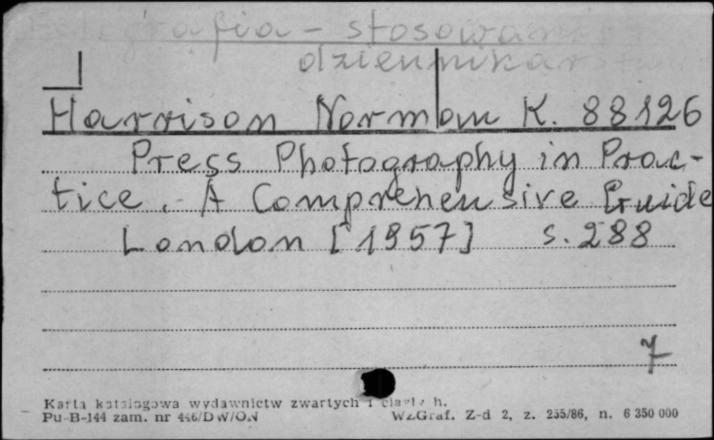 Fotografia - stosowan
dziennikarstwie
Harrison Norman K. 88126
Press Photography in Prac-
tice. - A Comprehensive Guide
London [1957] s. 288
7
Karta katalogowa wydawnictw zwartych i h.
Pu-B-144 zam. nr 446/DW/ON WZGraf. Z-d 2, z. 255/86, n. 6 350 000